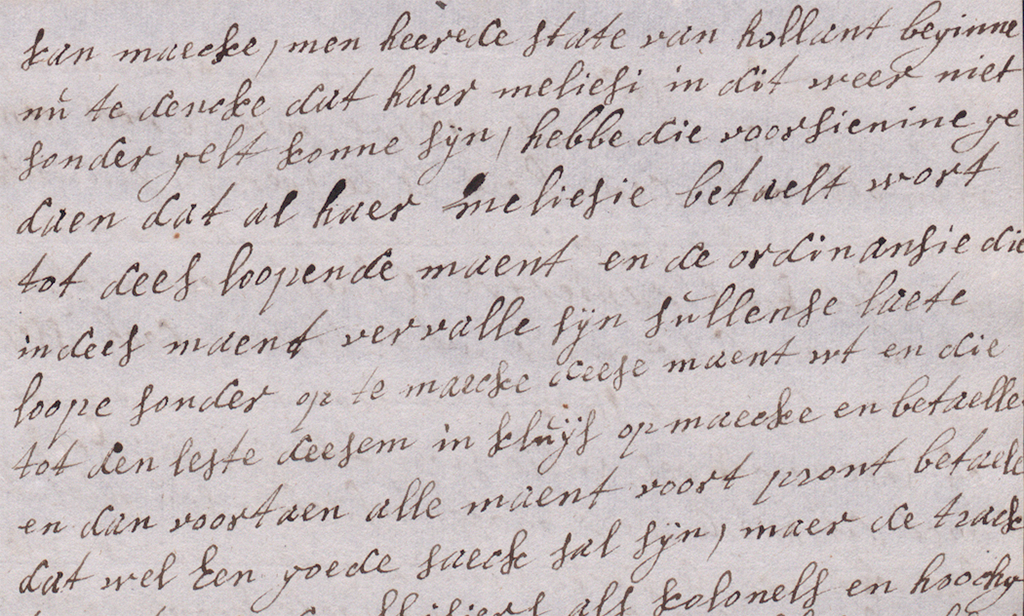 kan maecke, men heerede state van hollant beginne
nu te dencke dat haer meliesi in dit weer niet
sonder gelt konne sijn, hebbe die voorsienine ge
daen dat al haer meliesie betaelt wort
tot dees loopende maent en de ordinansie die
in dees maent vervalle sijn sullense laete
loope sonder op te maecke deese maent wt en die
tot den leste deesem in kluijs op maecke en betaelle
en dan voortaen alle maent voort pront betaele
dat wel Een goede saeck sal sijn, maer de track
als kolonels en hooch